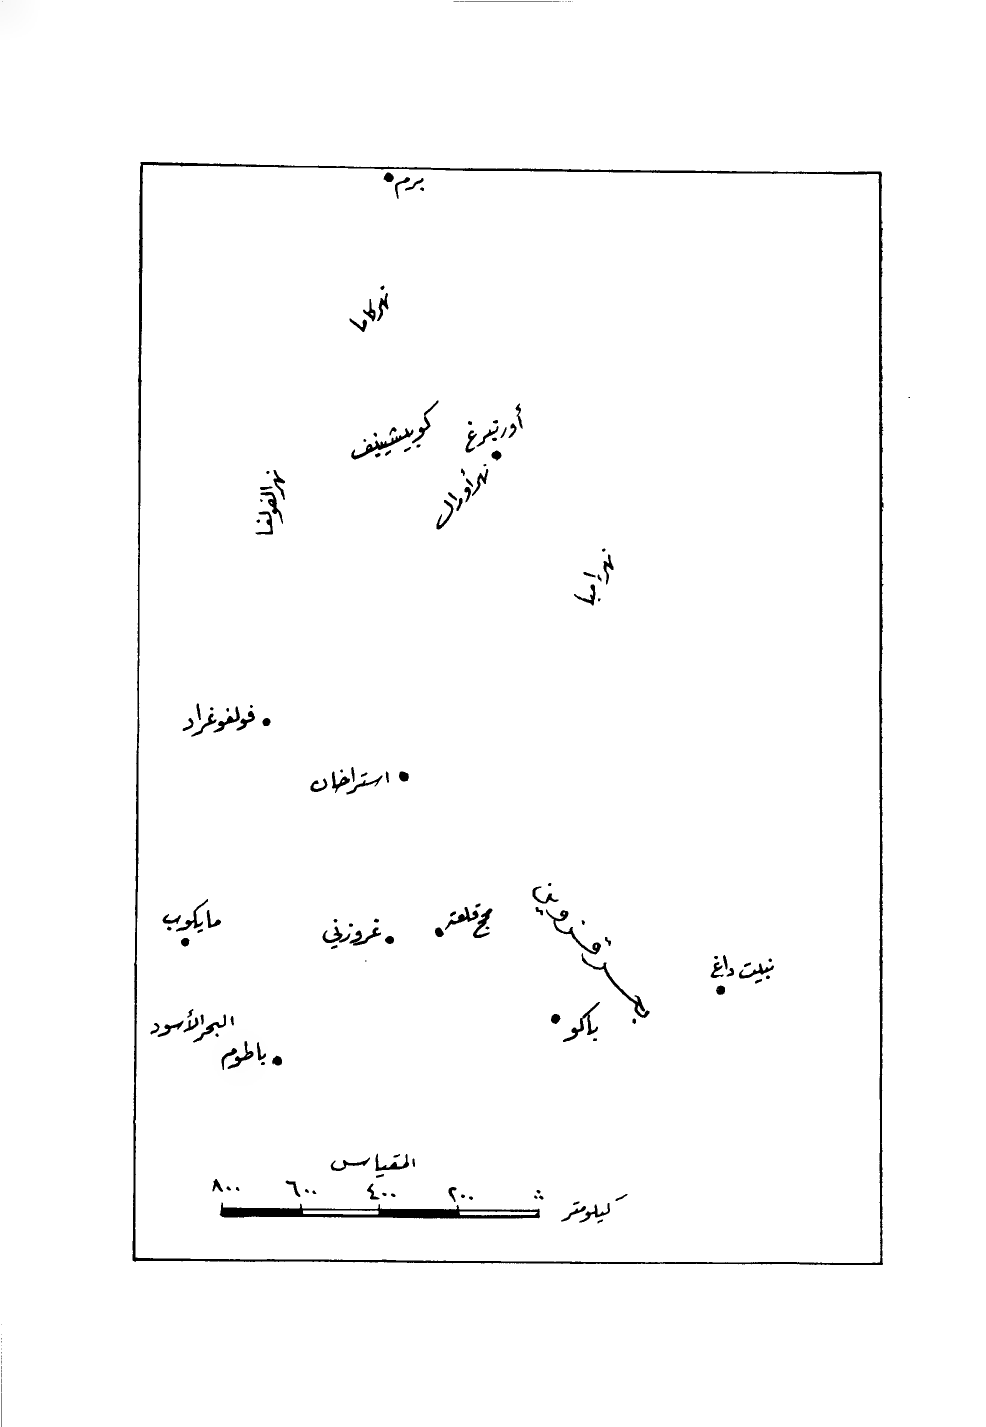 برم
نهر كاما
كوبيشيينف
أورنبرغ
نهر أورال
نهر الفولفا
نهر إمبا
فولفوغراد
استراخان
مايكوب
غروزني
مج قلعة
بحر قزوين
نبيت داغ
باكو
البحر الأسود
باطوم
المقياس
٨٠٠ ٦٠٠ ٤٠٠ ٢٠٠
كيلومتر